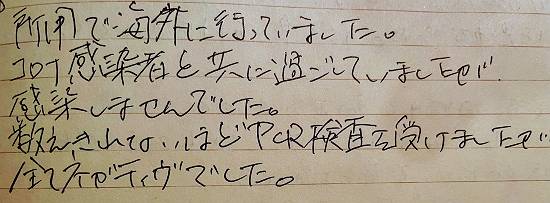 所用で海外に行っていました。
コロナ感染者と共に過ごしていましたが
感染しませんでした。
数えきれないほどPCR検査を受けましたが
全てネガティヴでした。